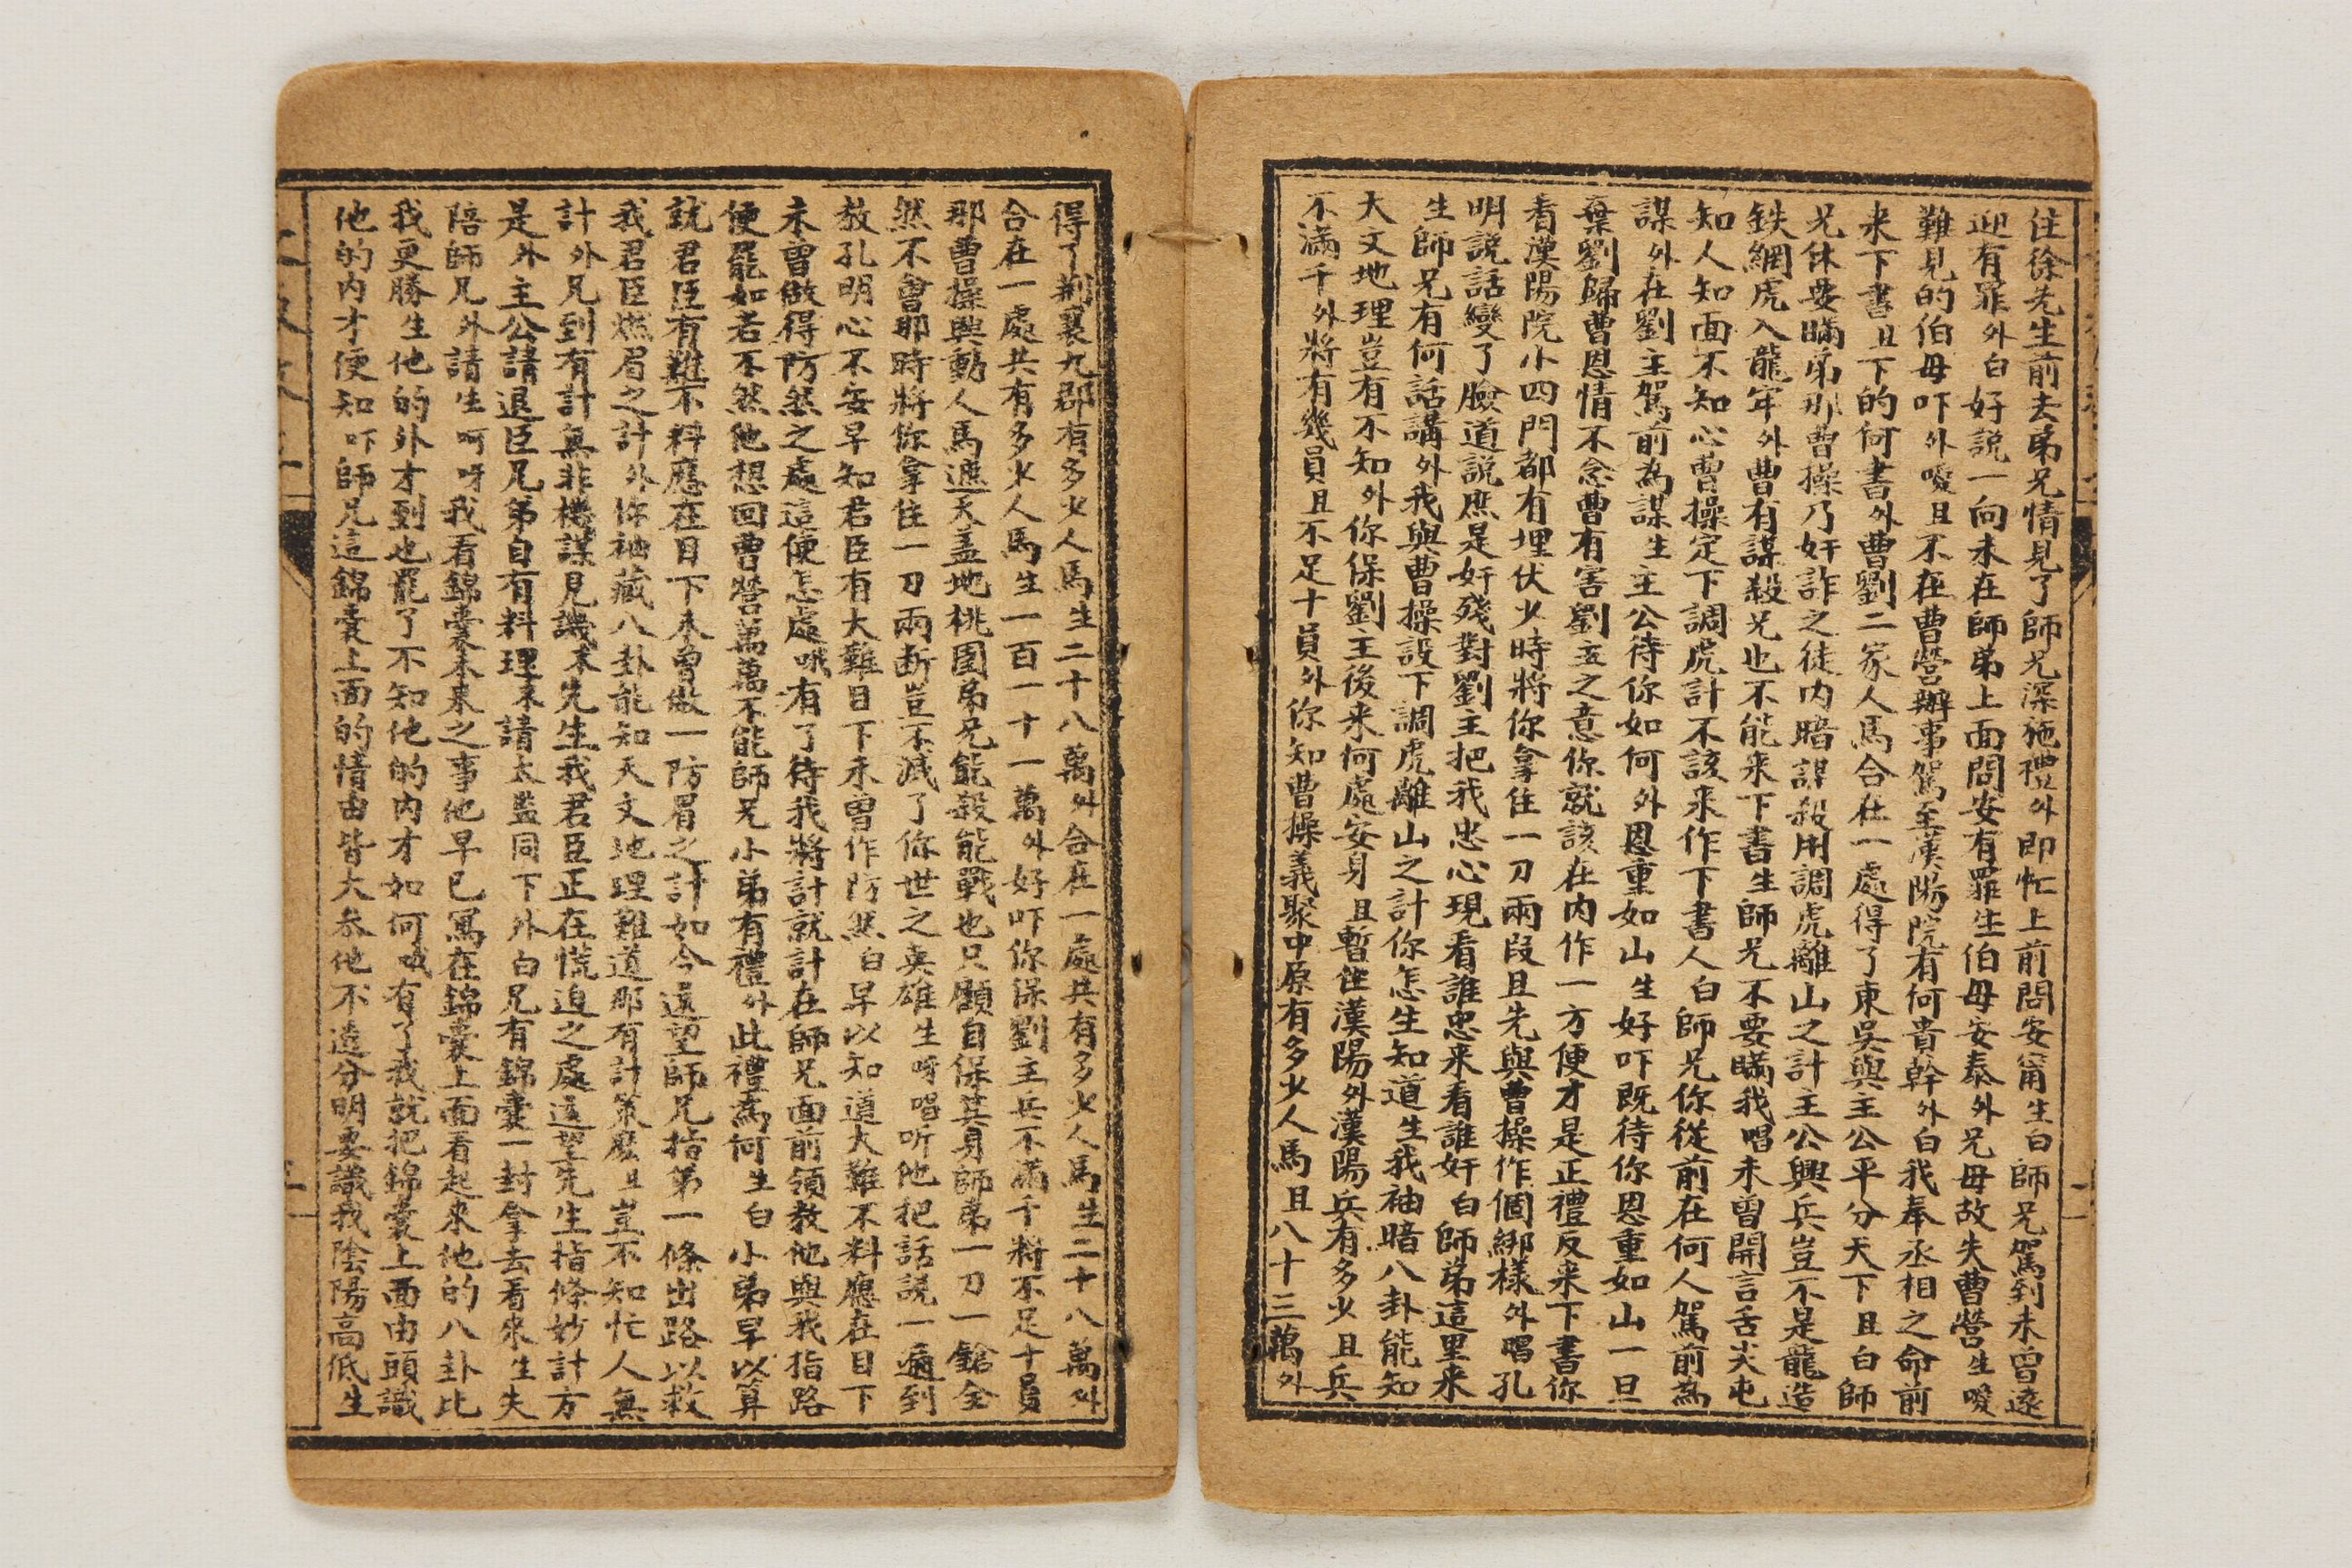 住徐先生前去弟兄情見了師兄深施禮外即忙上前問安甯生白師兄駕到未曾遠
迎有罪外白好説一向未在師弟上面問安有罪生伯母安泰外兄母故失曹營生噯
難見的伯母吓外噯且不在曹營辦事駕至漢陽院有何貴幹外白我奉丞相之命前
来下書且下的何書外曹劉二家人馬合在一處得了東吳與主公平分天下且白師
兄休要瞞弟那曹操乃奸詐之徒内暗謀殺用調虎離山之計王公興兵豈不是龍造
鉄網虎入龍牢外曹有謀殺兄也不能来下書生師兄不要瞞我唱未曾開言舌尖屯
知人知面不知心曹操定下調虎計不該来作下書人白師兄你從前在何人駕前為
謀外在劉主駕前為謀生主公待你如何外恩重如山生好吓既待你恩重如山一旦
棄劉歸曹恩情不念曹有害劉主之意你就該在内作一方便才是正禮反来下書你
看漢陽院小四門都有埋伏少時將你拿住一刀兩段且先與曹操作個綁樣外唱孔
明説話變了臉道説庶是奸殘對劉主把我忠心現看誰忠来看誰奸白師弟這里来
生師兄有何話講外我與曹操設下調虎離山之計你怎生知道生我袖暗八卦能知
大文地理豈有不知外你保劉王後来何處安身且暫住漢陽外漢陽兵有多少且兵
不滿千外將有幾員且不足十員外你知曹操義聚中原有多少人馬且八十三萬外
得了荆襄九郡有多少人馬生二十八萬外合在一處共有多少人馬生二十八萬外
合在一處共有多少人馬生一百一十一萬外好吓你保劉主兵不滿千將不足十員
那曹操興動人馬遮天盖地桃園弟兄能殺能戰也只顧自保其身師弟一刀一鎗全
然不會那時將你拿住一刀兩断豈不滅了你世之英雄生呀唱听他把話説一遍到
教孔明心不安早知君臣有大難目下未曾作防然白早以知道大難不料應在目下
未曾做得防然之處這便怎處哦有了待我將計就計在師兄面前領教他與我指路
便罷如若不然他想回曹營萬萬不能師兄小弟有禮外此禮為何生白小弟早以算
就君臣有難不料應在目下未曾做一防眉之計如今還望師兄指第一條出路以救
我君臣燃眉之計外你袖藏八卦能知天文地理難道那有計策麽且豈不知忙人無
計外兄到有計無非機謀見譏末先生我君臣正在慌迫之處還望先生指條妙計方
是外主公請退臣兄弟自有料理末請太監同下外白兄有錦囊一封拿去看來生失
陪師兄外請生呵呀我看錦囊未来之事他早已寫在錦囊上面看起來他的八卦比
我更勝生他的外才到也罷了不知他的内才如何哦有了我就把錦囊上面由頭識
他的内才便知吓師兄這錦囊上面的情由皆大叅他不造分明要識我陰陽高低生